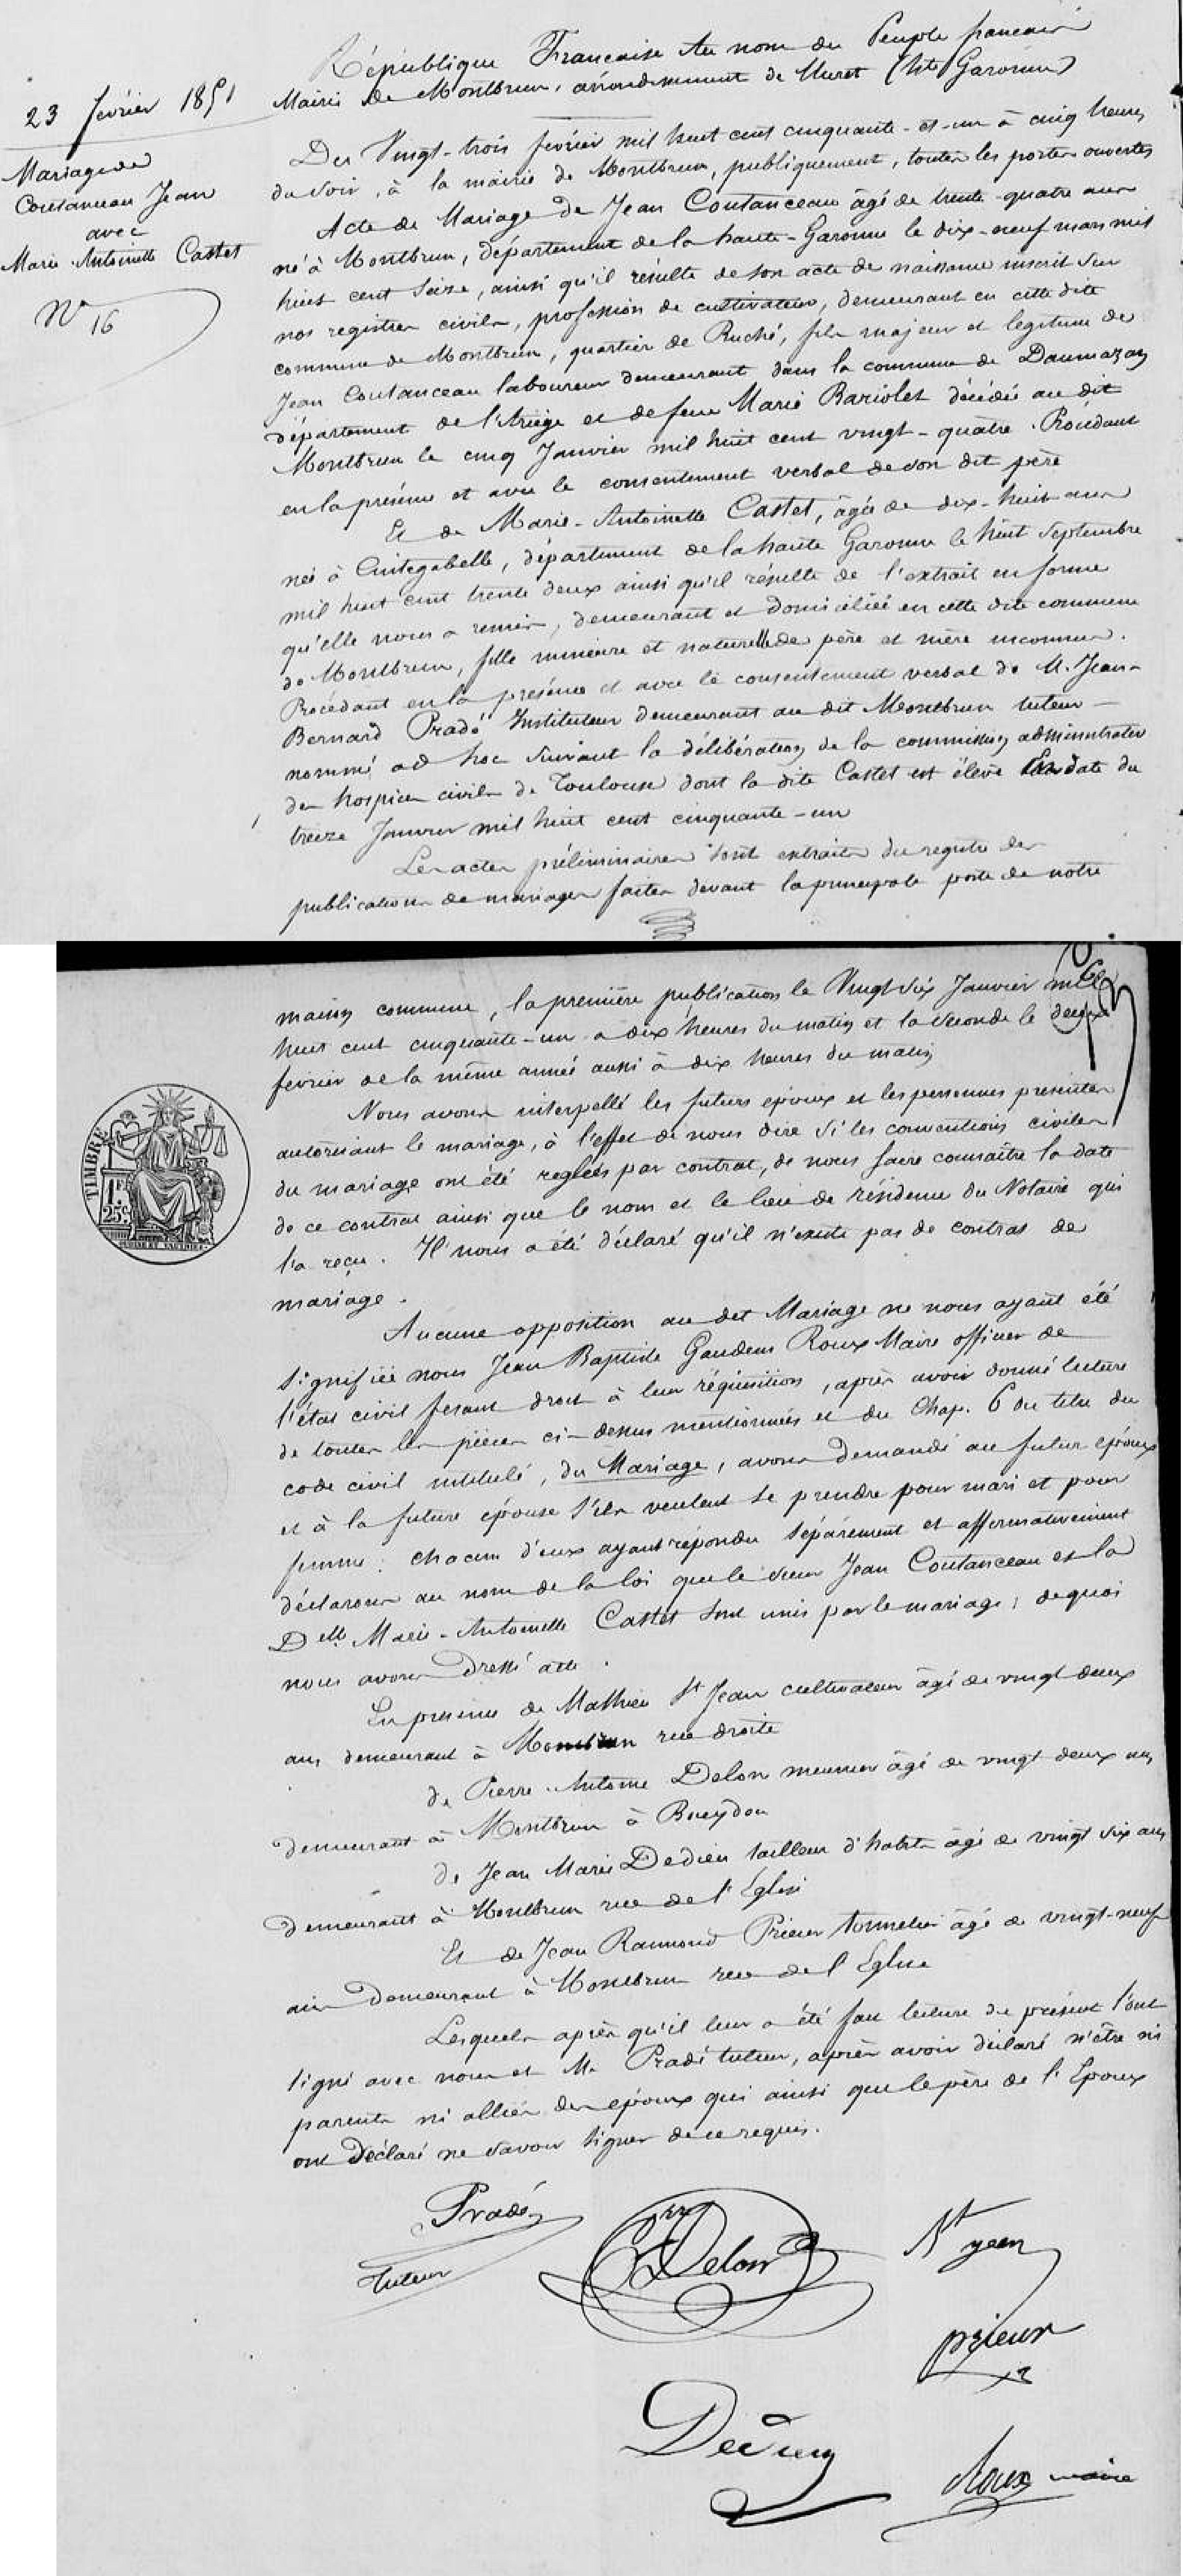 République Française Au nom du Peuple français
Mairie de Montbrun, arrondissement de Muret (Hte Garonne)
23 février 1851
Mariage de
Coutanceau Jean
avec
Marie Antoinette Castet
No 16
Du Vingt-trois février mil huit cent cinquante-et-un à cinq heures
du soir, à la mairie de Montbrun, publiquement, toutes les portes ouvertes
Acte de Mariage de Jean Coutanceau âgé de trente-quatre ans
né à Montbrun, département de la haute-Garonne le dix-neuf mars mil
huit cent seize, ainsi qu'il résulte de son acte de naissance inscrit sur
nos registres civils, profession de cultivateur, demeurant en cette dite
commune de Montbrun, quartier de Ruché, fils majeur et légitime de
Jean Coutanceau laboureur demeurant dans la commune de Daumazan
département de l'Ariège et de feue Marie Bariolet décédée au dit
Montbrun le cinq Janvier mil huit cent vingt-quatre. Procédant
en la présence et avec le consentement verbal de son dit père
Et de Marie-Antoinette Castet, âgée de dix-huit ans
née à Cintegabelle, département de la haute Garonne le huit Septembre
mil huit cent trente deux ainsi qu'il résulte de l'extrait en forme
qu'elle nous a remis, demeurant et domiciliée en cette dite commune
de Montbrun, fille mineure et naturelle de père et mère inconnus.
Procédant en la présence et avec le consentement verbal de M. Jean-
Bernard Pradé Instituteur demeurant au dit Montbrun tuteur
nommé ad hoc suivant la délibération de la commission administrative
des hospices civils de Toulouse dont la dite Castet est élève en date du
treize Janvier mil huit cent cinquante-un
Les actes préliminaires sont extraits du registre des
publications de mariages faites devant la principale porte de notre
maison commune, la première publication le Vingt six Janvier mil
huit cent cinquante-un a dix heures du matin et la seconde le deux
février de la même année aussi à dix heures du matin
Nous avons interpellé les futurs époux et les personnes présentes
autorisant le mariage, à l'effet de nous dire si les conventions civiles
du mariage ont été reglées par contrat, de nous faire connaître la date
de ce contrat ainsi que le nom et le lieu de résidence du Notaire qui
l'a reçu. Il nous a été déclaré qu'il n'existe pas de contrat de
mariage.
TIMBRE
1F.
25c.
Aucune opposition au dit Mariage ne nous ayant été
signifiée nous Jean Baptiste Gaudens Roux Maire officier de
l'état civil fesant droit à leur réquisition, après avoir donné lecture
de toutes les pièces ci-dessus mentionnées et du Chap. 6 du titre du
code civil intitulé, du Mariage, avons demandé au futur époux
et à la future épouse s'ils veulent se prendre pour mari et pour
femme: chacun d'eux ayant répondu séparément et affirmativement
déclarons au nom de la loi que le sieur Jean Coutanceau et la
Delle Marie-Antoinette Castet sont unis par le mariage; de quoi
nous avons dressé acte.
En présence de Mathieu St Jean cultivateur âgé de vingt deux
ans demeurant à Montbrun rue droite
de Pierre-Antoine Delon meunier âgé de vingt deux ans
demeurant à Montbrun à Bueydou
de Jean Marie Dedieu tailleur d'habits âgé de vingt six ans
demeurant à Montbrun rue de l'Église
Et de Jean Raimond Prieur tonnelier âgé de vingt-neuf
ans demeurant à Montbrun rue de l'Eglise
Lesquels après qu'il leur a été fait lecture du présent l'ont
signé avec nous et Mr Pradé tuteur, après avoir déclaré n'être ni
parents ni alliés des époux qui ainsi que le père de l'Epoux
ont Déclaré ne savoir signer de ce requis.
Pradé
tuteur
Delon
St jean
prieur
Dedieu
Roux maire